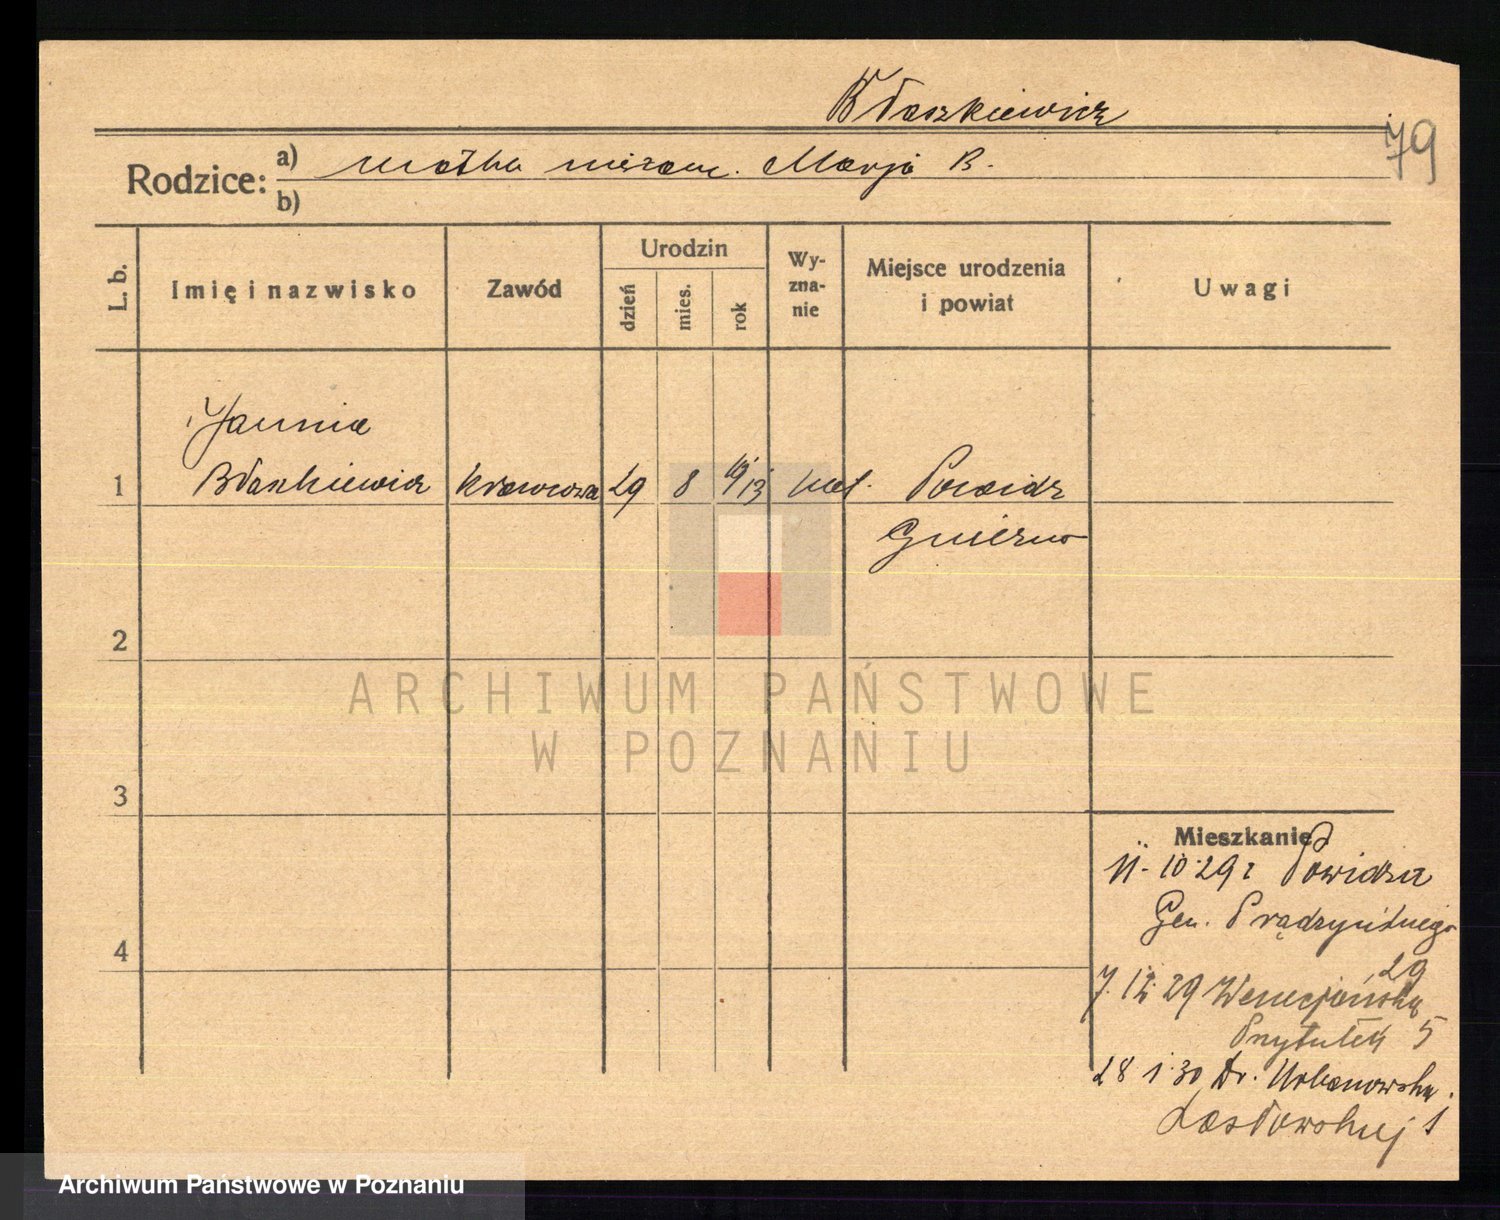 Błaszkiewicz
79
Rodzice: a) matka niezam. Marja B.
b)
L. b.
Imię i nazwisko
Zawód
Urodzin
dzień
mies.
rok
Wy-
zna-
nie
Miejsce urodzenia
i powiat
Uwagi
Janina
1 Błaszkiewicz krawcowa 29 8 1913 kat. Powidz
Gniezno
2
ARCHIWUM PAŃSTWOWE
W POZNANIU
3
Mieszkanie
11.10.29 z Powidza
Gen. Prądzyńskiego
29
4
7.12.29 Wenecjańska
Przytułek 5
28 1.30 Dr. Urbanowska
1
Archiwum Państwowe w Poznaniu